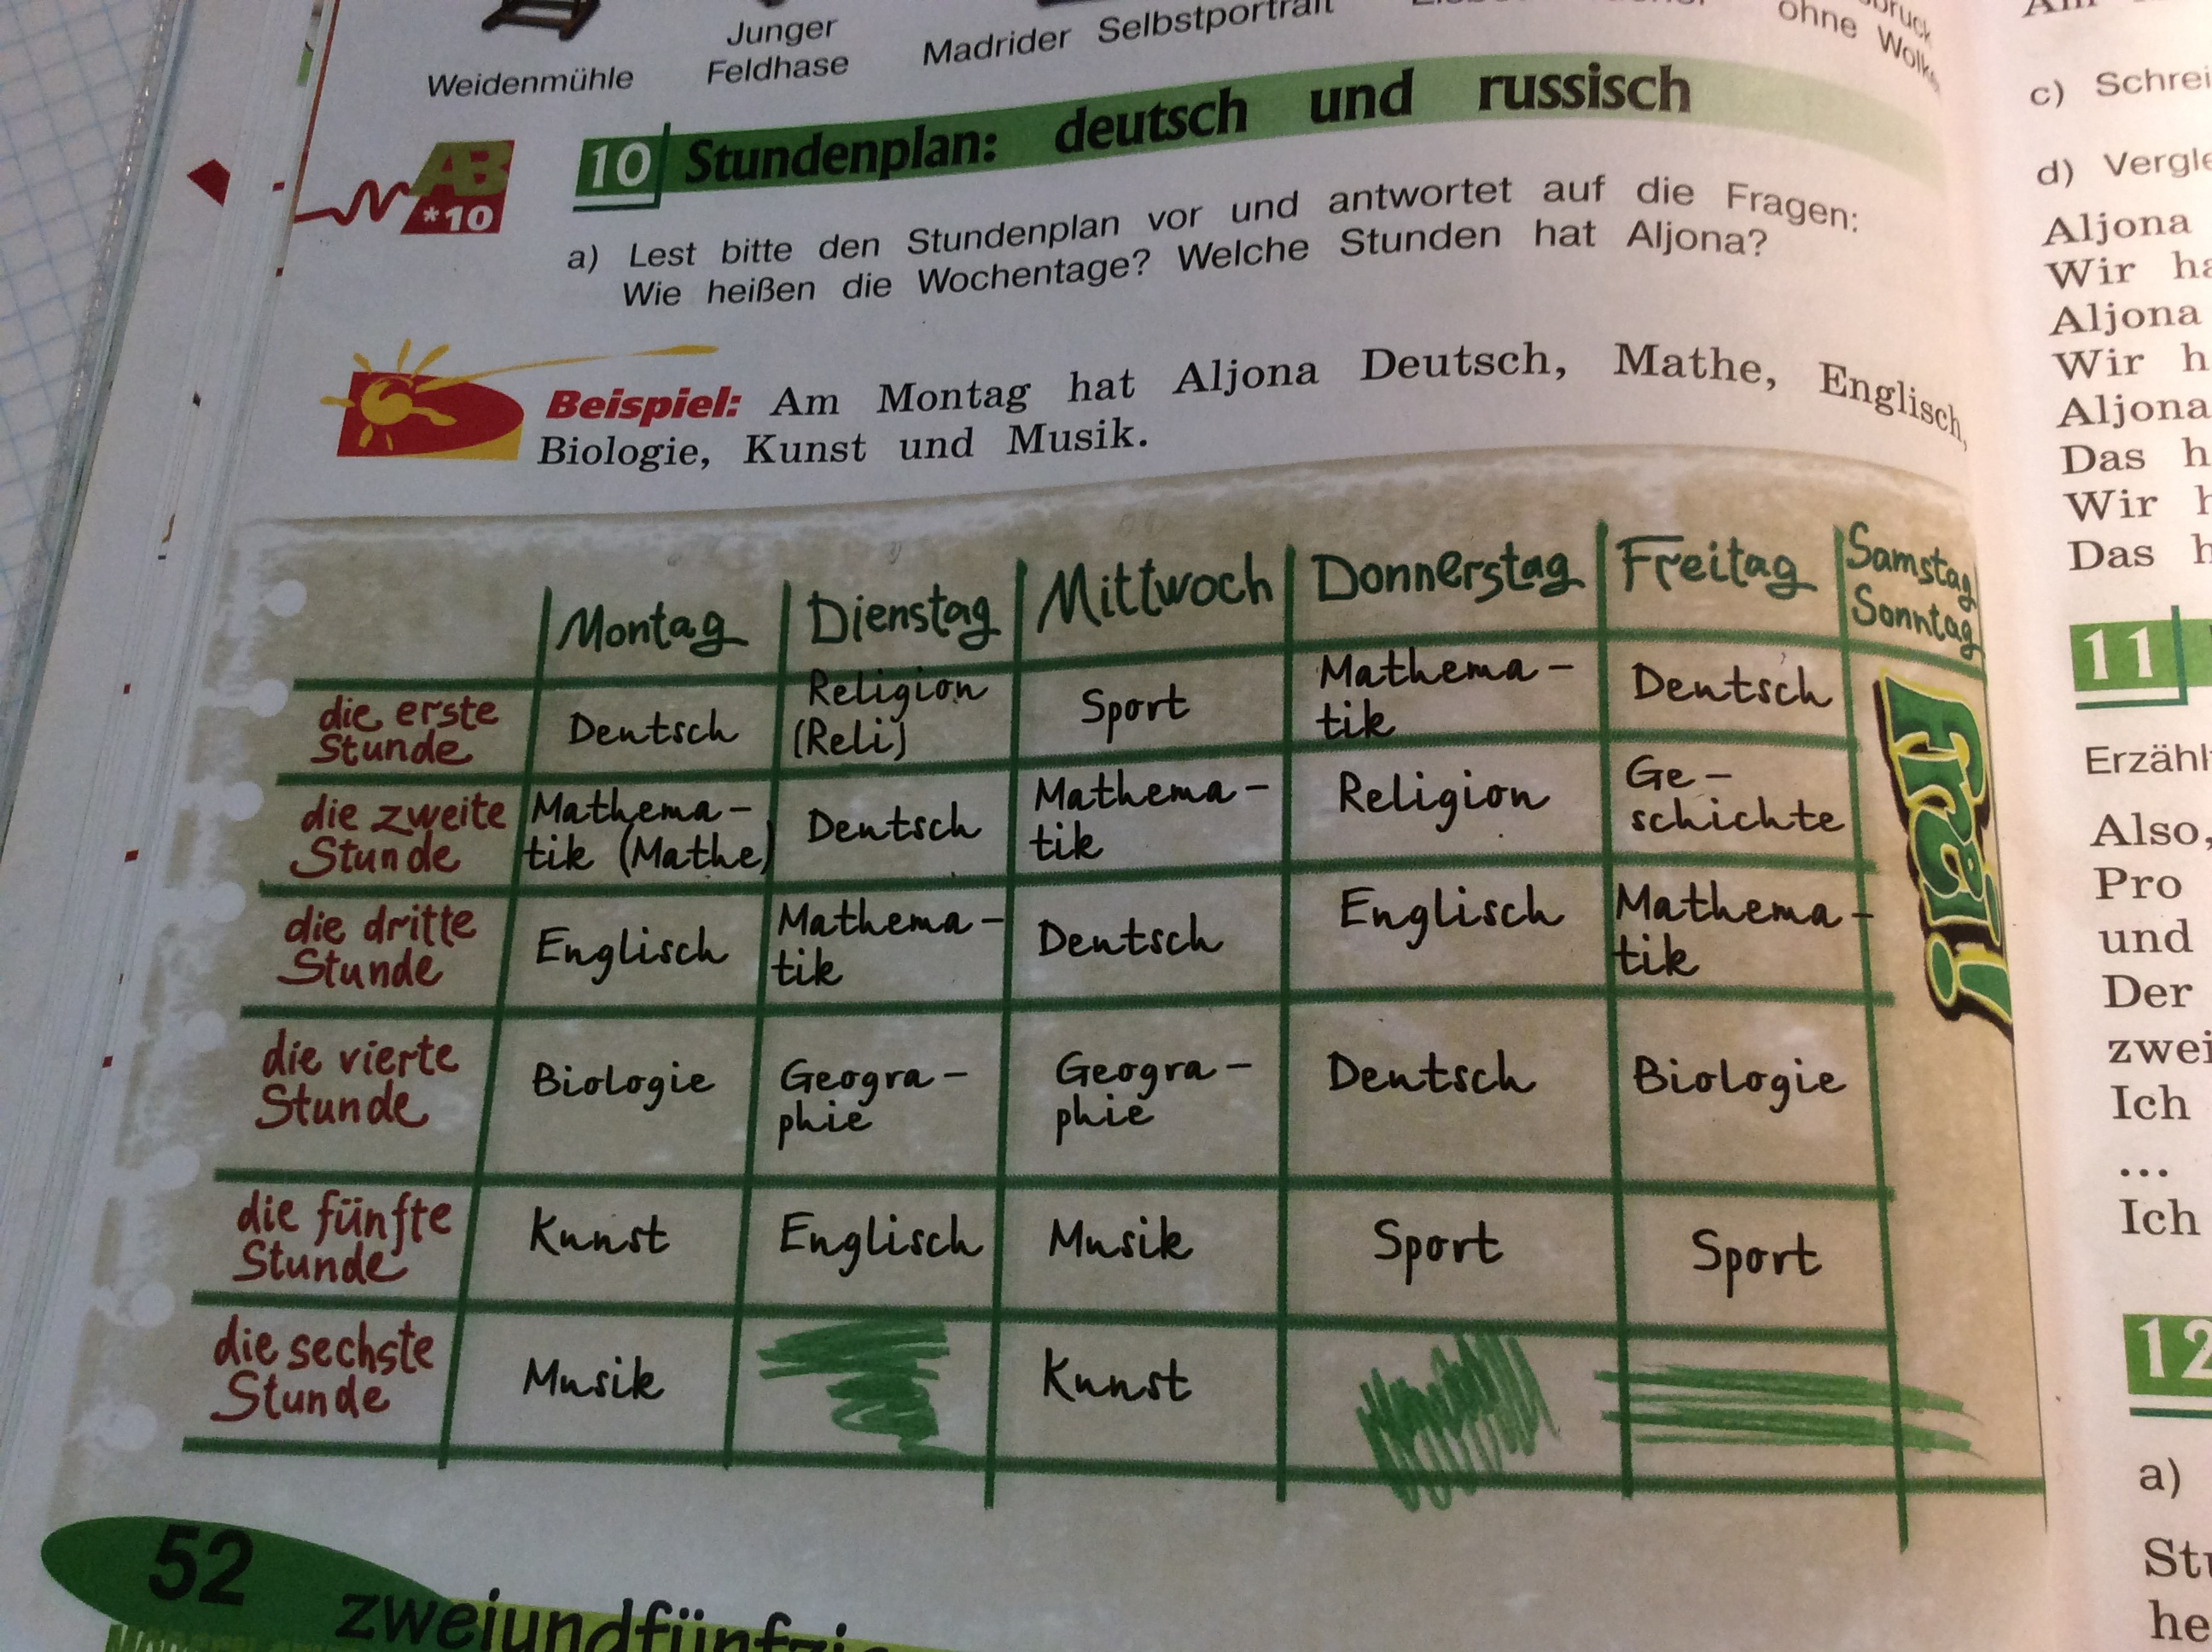 Weidenmühle
Junger
Feldhase
Madrider Selbstportrait
ohne Wolken
10 Stundenplan: deutsch und russisch
AB
*10
a) Lest bitte den Stundenplan vor und antwortet auf die Fragen:
Wie heißen die Wochentage? Welche Stunden hat Aljona?
Beispiel: Am Montag hat Aljona Deutsch, Mathe, Englisch,
Biologie, Kunst und Musik.
Montag Dienstag Mittwoch Donnerstag Freitag Samstag
Sonntag
die erste
Stunde
Deutsch
Religion
(Reli)
Sport
Mathema-
tik
Deutsch
Frei!
die zweite
Stunde
Mathema-
tik (Mathe)
Deutsch
Mathema-
tik
Religion
Ge-
schichte
die dritte
Stunde
Englisch
Mathema-
tik
Deutsch
Englisch
Mathema-
tik
die vierte
Stunde
Biologie
Geogra-
phie
Geogra-
phie
Deutsch
Biologie
die fünfte
Stunde
Kunst
Englisch
Musik
Sport
Sport
die sechste
Stunde
Musik
Kunst
52
c) Schrei
d) Vergle
Aljona
Wir ha
Aljona
Wir h
Aljona
Das h
Wir h
Das h
11
Erzähl
Also,
Pro
und
Der
zwei
Ich
...
Ich
12
a)
he